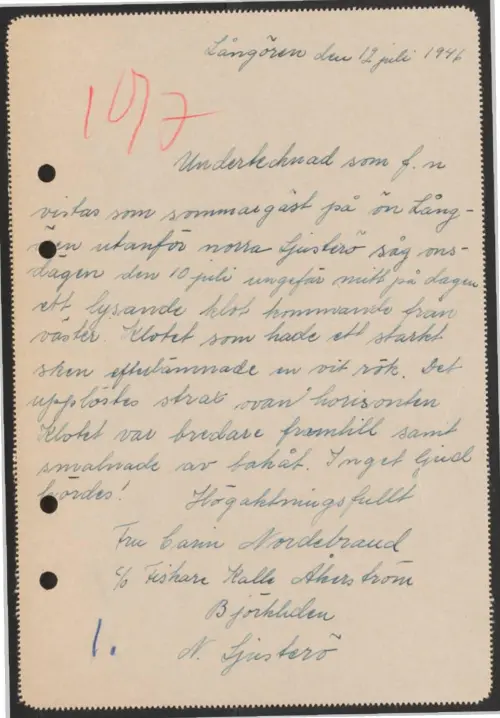 Långören den 12 juli 1946
10/7
Undertecknad som f.n
vistas som sommargäst på ön Lång-
ören utanför norra Ljusterö såg ons-
dagen den 10 juli ungefär mitt på dagen
ett lysande klot kommande från
väster. Klotet som hade ett starkt
sken efterlämnade en vit rök. Det
upplöstes strax ovan horisonten
Klotet var bredare framtill samt
smalnade av bakåt. Inget ljud
hördes! Högaktningsfullt
Fru Nordebrand
c/o Fiskare Kalle Åkerström
Björkliden
1. N. Ljusterö